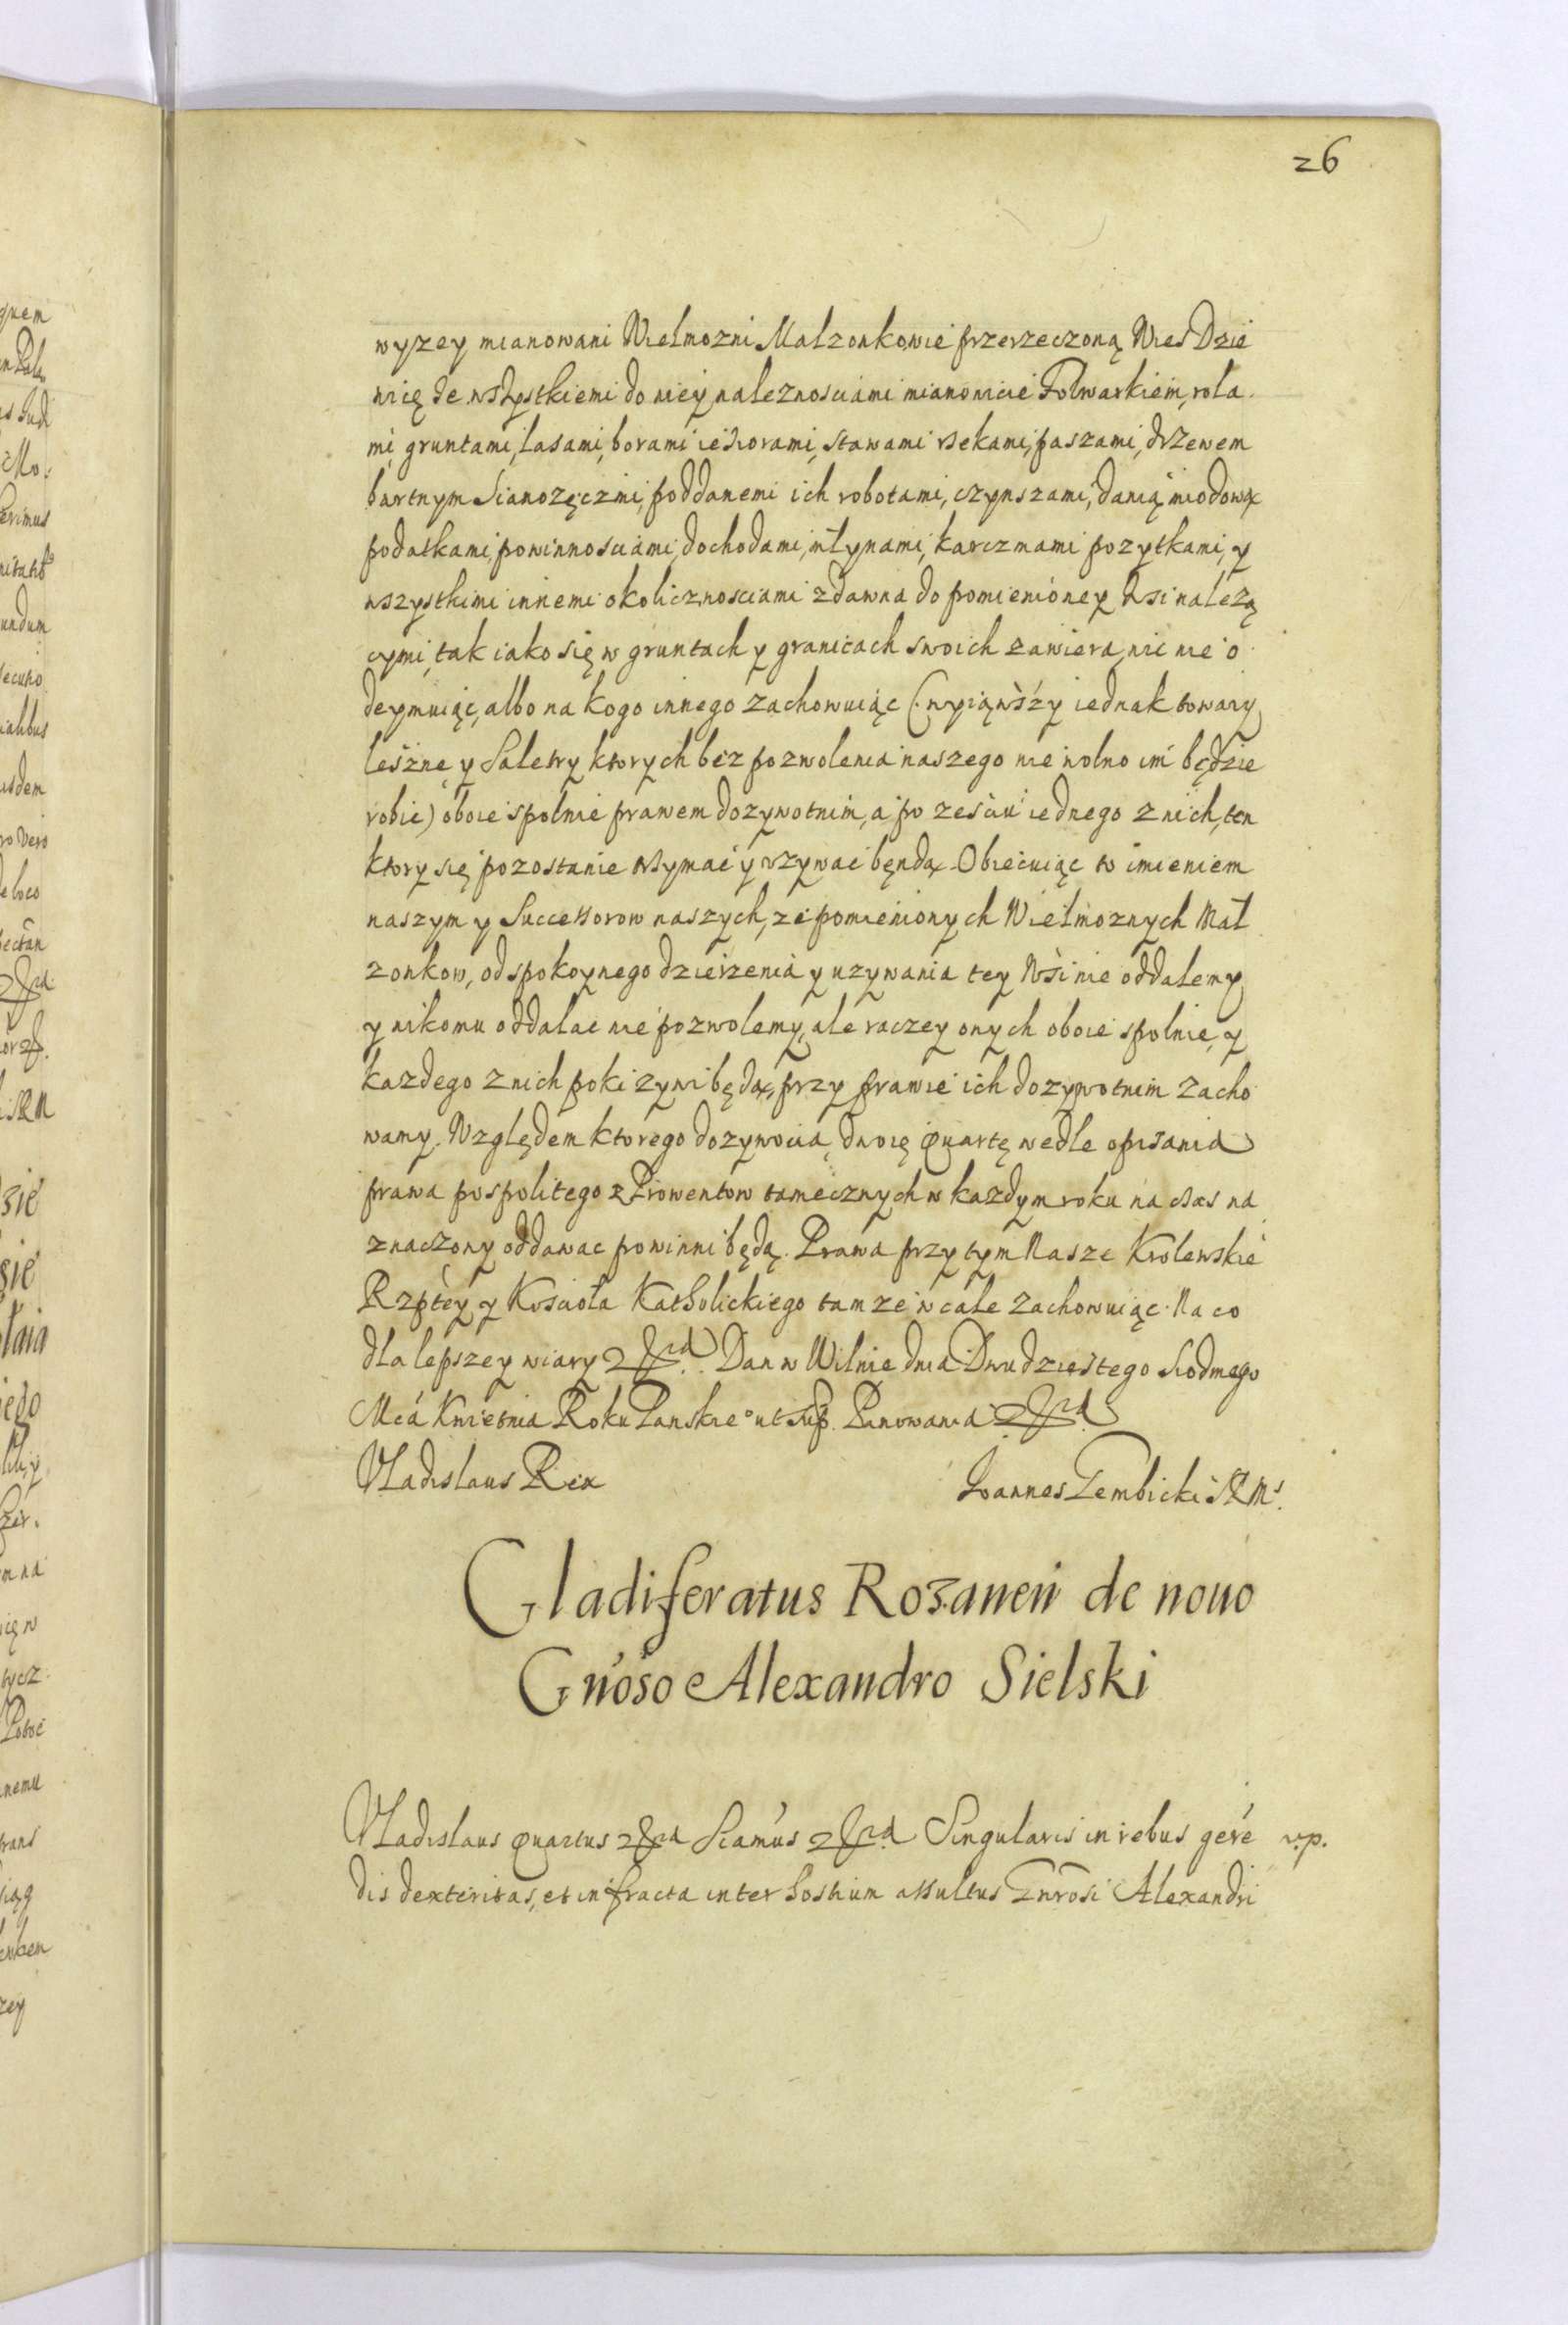 26
wyzey mianowani Wielmozni Malzonkowie przerzeczoną Wies Dzie
nicę ze wszystkiemi do niey naleznosciami mianowicie Folwarkiem, rola
mi gruntami, lasami, borami ieziorami, stawami rzekami, paszami, drzewem
bartnym Sianozęczmi, poddanemi ich robotami, czynszami, danią miodową
podatkami, powinnosciami, dochodami, młynami, karczmami pozytkami, y
wszystkimi innemi okolicznosciami zdawna do pomienioney Wsi nalezą
cymi, tak iako się w gruntach y granicach swoich zawiera, nic nie o
deymuiąc, albo na kogo innego zachowuiąc (wyiąwszy iednak towary
leszne y Saletry ktorych bez pozwolenia naszego nie wolno im będzie
robic) oboie spolnie prawem dozywotnim, a po zesciu iednego z nich, ten
ktory się pozostanie trzymac y vzywac będą. Obiecuiąc to imieniem
naszym y Successorow naszych, ze pomienionych Wielmoznych Mał
zonkow, od spokoynego dzierzenia y uzywania tey Wsi nie oddalemy
y nikomu oddalac nie pozwolemy, ale raczey onych oboie spolnie, y
kazdego z nich poki zywi będą, przy prawie ich dozywotnim zacho
wamy. Względem ktorego dozywocia, dwoię Quartę wedle opisania
prawa pospolitego z Prowentow tamecznych w kazdym roku na czas na
znaczony oddawac powinni będą. Prawa przytym Nasze Krolewskie
Rzptey y Kosciola Katholickiego tamze w cale zachowuiąc. Na co
dla lepszey wiary etc. Dan w Wilnie dnia Dwudziestego Siodmego
Mca Kwietnia Roku Panskie° ut sup. Panowania etc.
Vladislaus Rex
Joannes Gembicki SRMs.
Gladiferatus Rozanen de nouo
Gnoso Alexandro Sielski
Vladislaus Quartus etc Scamus etc. Singularis in rebus gere v.p.
dis dexteritas, et infracta inter hostium assultus Gnrosi Alexandri